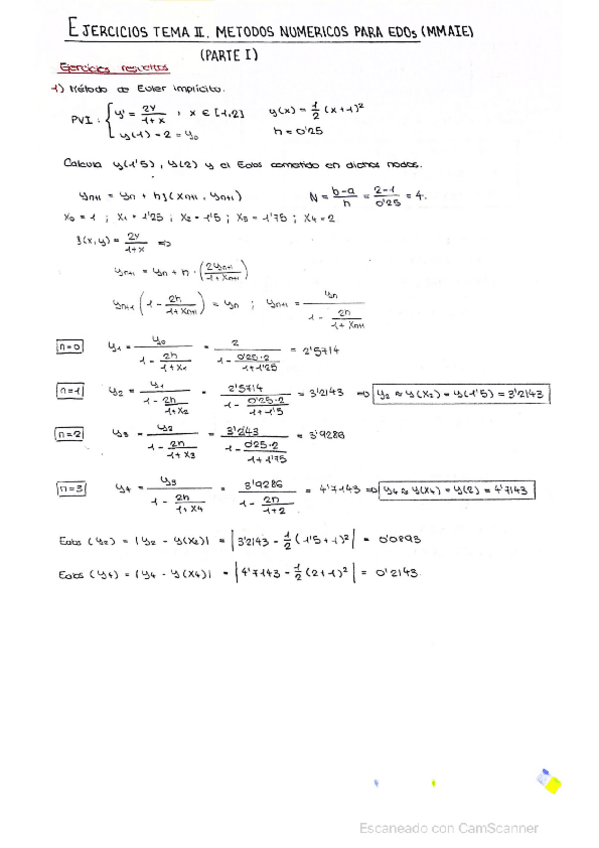 EJERCICIOS TEMA II. METODOS NUMERICOS PARA EDOs (MMAIE)
(PARTE I)
Ejercicios resueltos
1) Método de Euler implícito.
PVI: { y' = 2y/1+x , x ∈ [1,2]   y(x) = 1/2 (x+1)²
y(1) = 2 = y₀   h = 0'25
Calcula y(1'5), y(2) y el Eabs cometido en dichos nodos.
yn+1 = yn + hf(xn+1, yn+1)   N = b-a/h = 2-1/0'25 = 4.
x₀ = 1 ; x₁ = 1'25 ; x₂ = 1'5 ; x₃ = 1'75 ; x₄ = 2
f(x,y) = 2y/1+x ⇒
yn+1 = yn + h · (2yn+1/1+xn+1)
yn+1 (1 - 2h/1+xn+1) = yn ; yn+1 = yn/1 - 2h/1+xn+1
n=0   y₁ = y₀/1 - 2h/1+x₁ = 2/1 - 0'25·2/1+1'25 = 2'5714
n=1   y₂ = y₁/1 - 2h/1+x₂ = 2'5714/1 - 0'25·2/1+1'5 = 3'2143 ⇒ y₂ ≈ y(x₂) = y(1'5) = 3'2143
n=2   y₃ = y₂/1 - 2h/1+x₃ = 3'2143/1 - 0'25·2/1+1'75 = 3'9286
n=3   y₄ = y₃/1 - 2h/1+x₄ = 3'9286/1 - 2h/1+2 = 4'7143 ⇒ y₄ ≈ y(x₄) = y(2) = 4'7143
Eabs (y₂) = |y₂ - y(x₂)| = |3'2143 - 1/2 (1'5+1)²| = 0'0893
Eabs (y₄) = |y₄ - y(x₄)| = |4'7143 - 1/2 (2+1)²| = 0'2143.
Escaneado con CamScanner